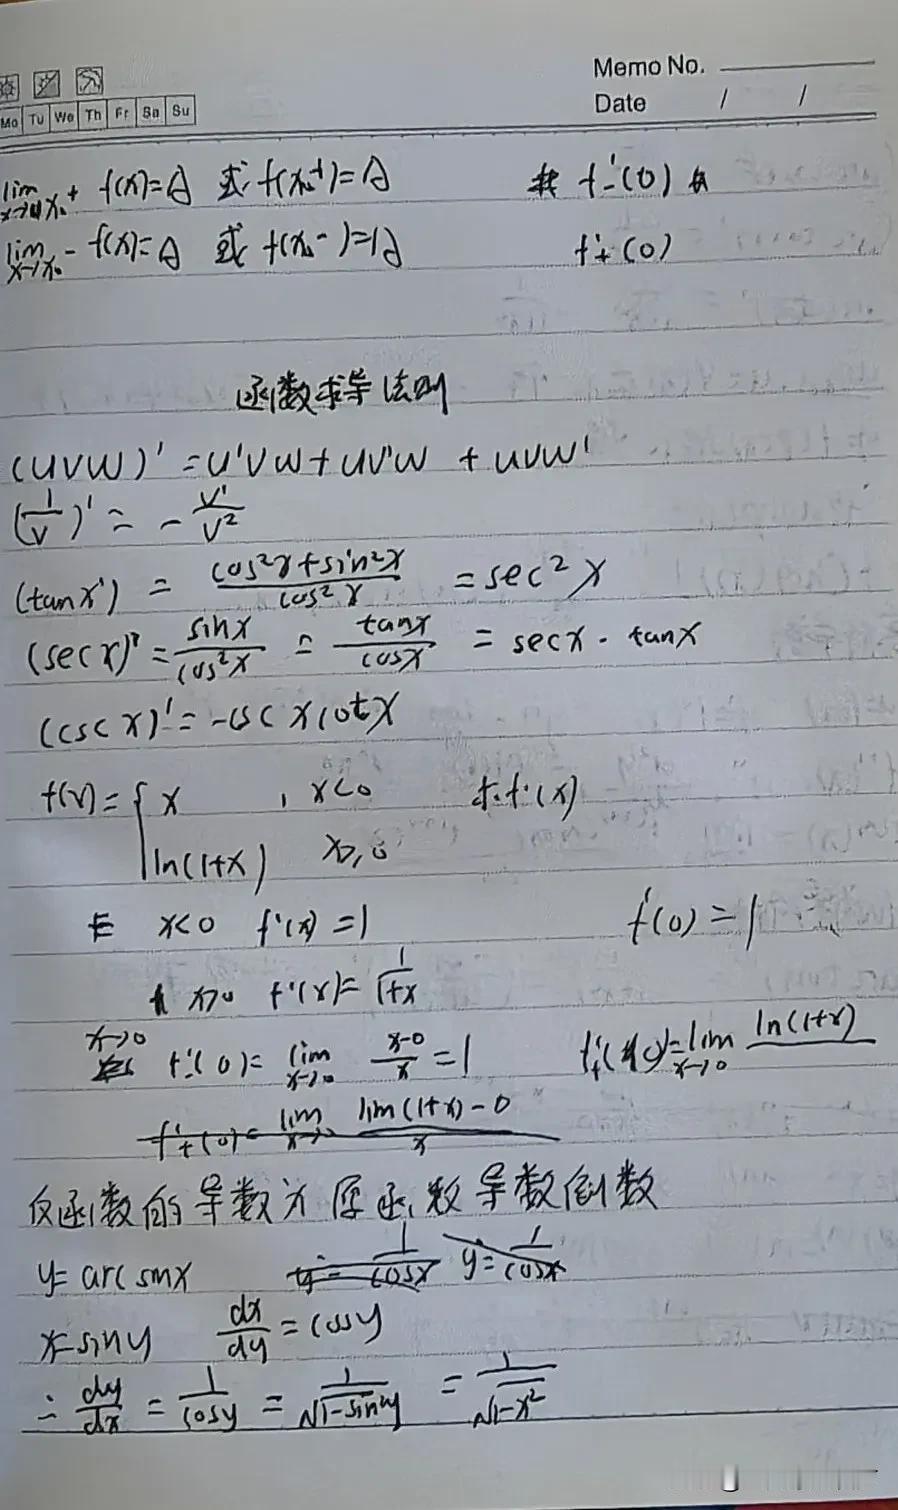 Memo No.
Date / /
Mo Tu We Th Fr Sa Su
lim x→x₀⁺ f(x)=A 或 f(x₀⁺)=A f'₋(0)
lim x→x₀⁻ f(x)=A 或 f(x₀⁻)=A f'₊(0)
函数求导法则
(uvw)' = u'vw + uv'w + uvw'
(1/v)' = - v'/v²
(tanx') = (cos²x+sin²x)/cos²x = sec²x
(secx)' = sinx/cos²x = tanx/cosx = secx·tanx
(cscx)' = -cscxcotx
f(x) = { x , x<0 求f'(x)
ln(1+x) x≥0
x<0 f'(x)=1 f'(0)=1
x>0 f'(x)=1/(1+x)
x→0 f'₋(0)= lim x→0 (x-0)/x =1 f'₊(0)=lim x→0 ln(1+x)
f'₊(0)= lim x→0 (lim(1+x)-0)/x
反函数的导数为原函数导数倒数
y=arcsinx y'=1/cosx y=1/cosx
x=siny dx/dy = cosy
∴ dy/dx = 1/cosy = 1/√(1-sin²y) = 1/√(1-x²)